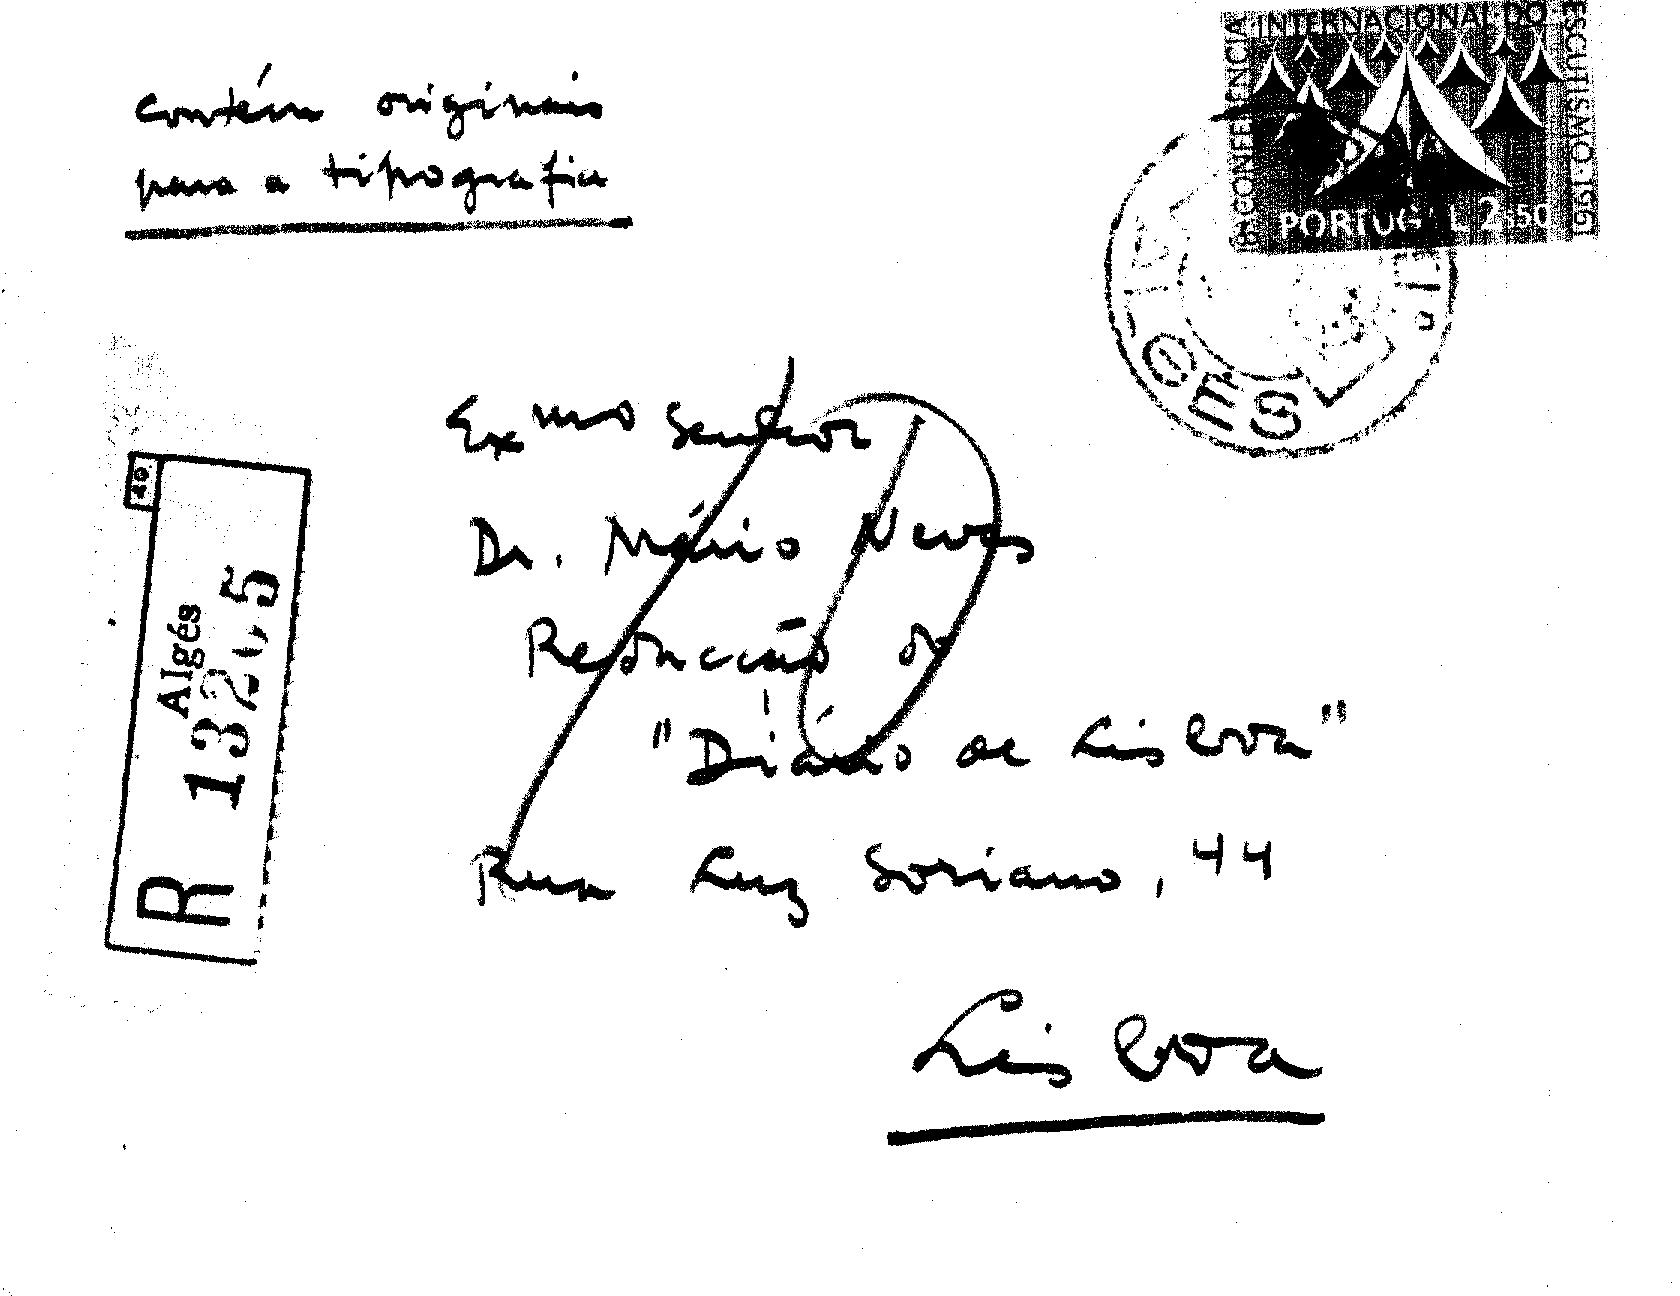 contém originais
para a tipografia
18ª CONFERÊNCIA INTERNACIONAL DO ESCUTISMO · 1961
PORTUGAL 2$50
GÉS
40.
Algés
R 132
Exmo Senhor
Dr. Mário Neves
Redacção do
"Diário de Lisboa"
Rua Luz Soriano, 44
Lisboa